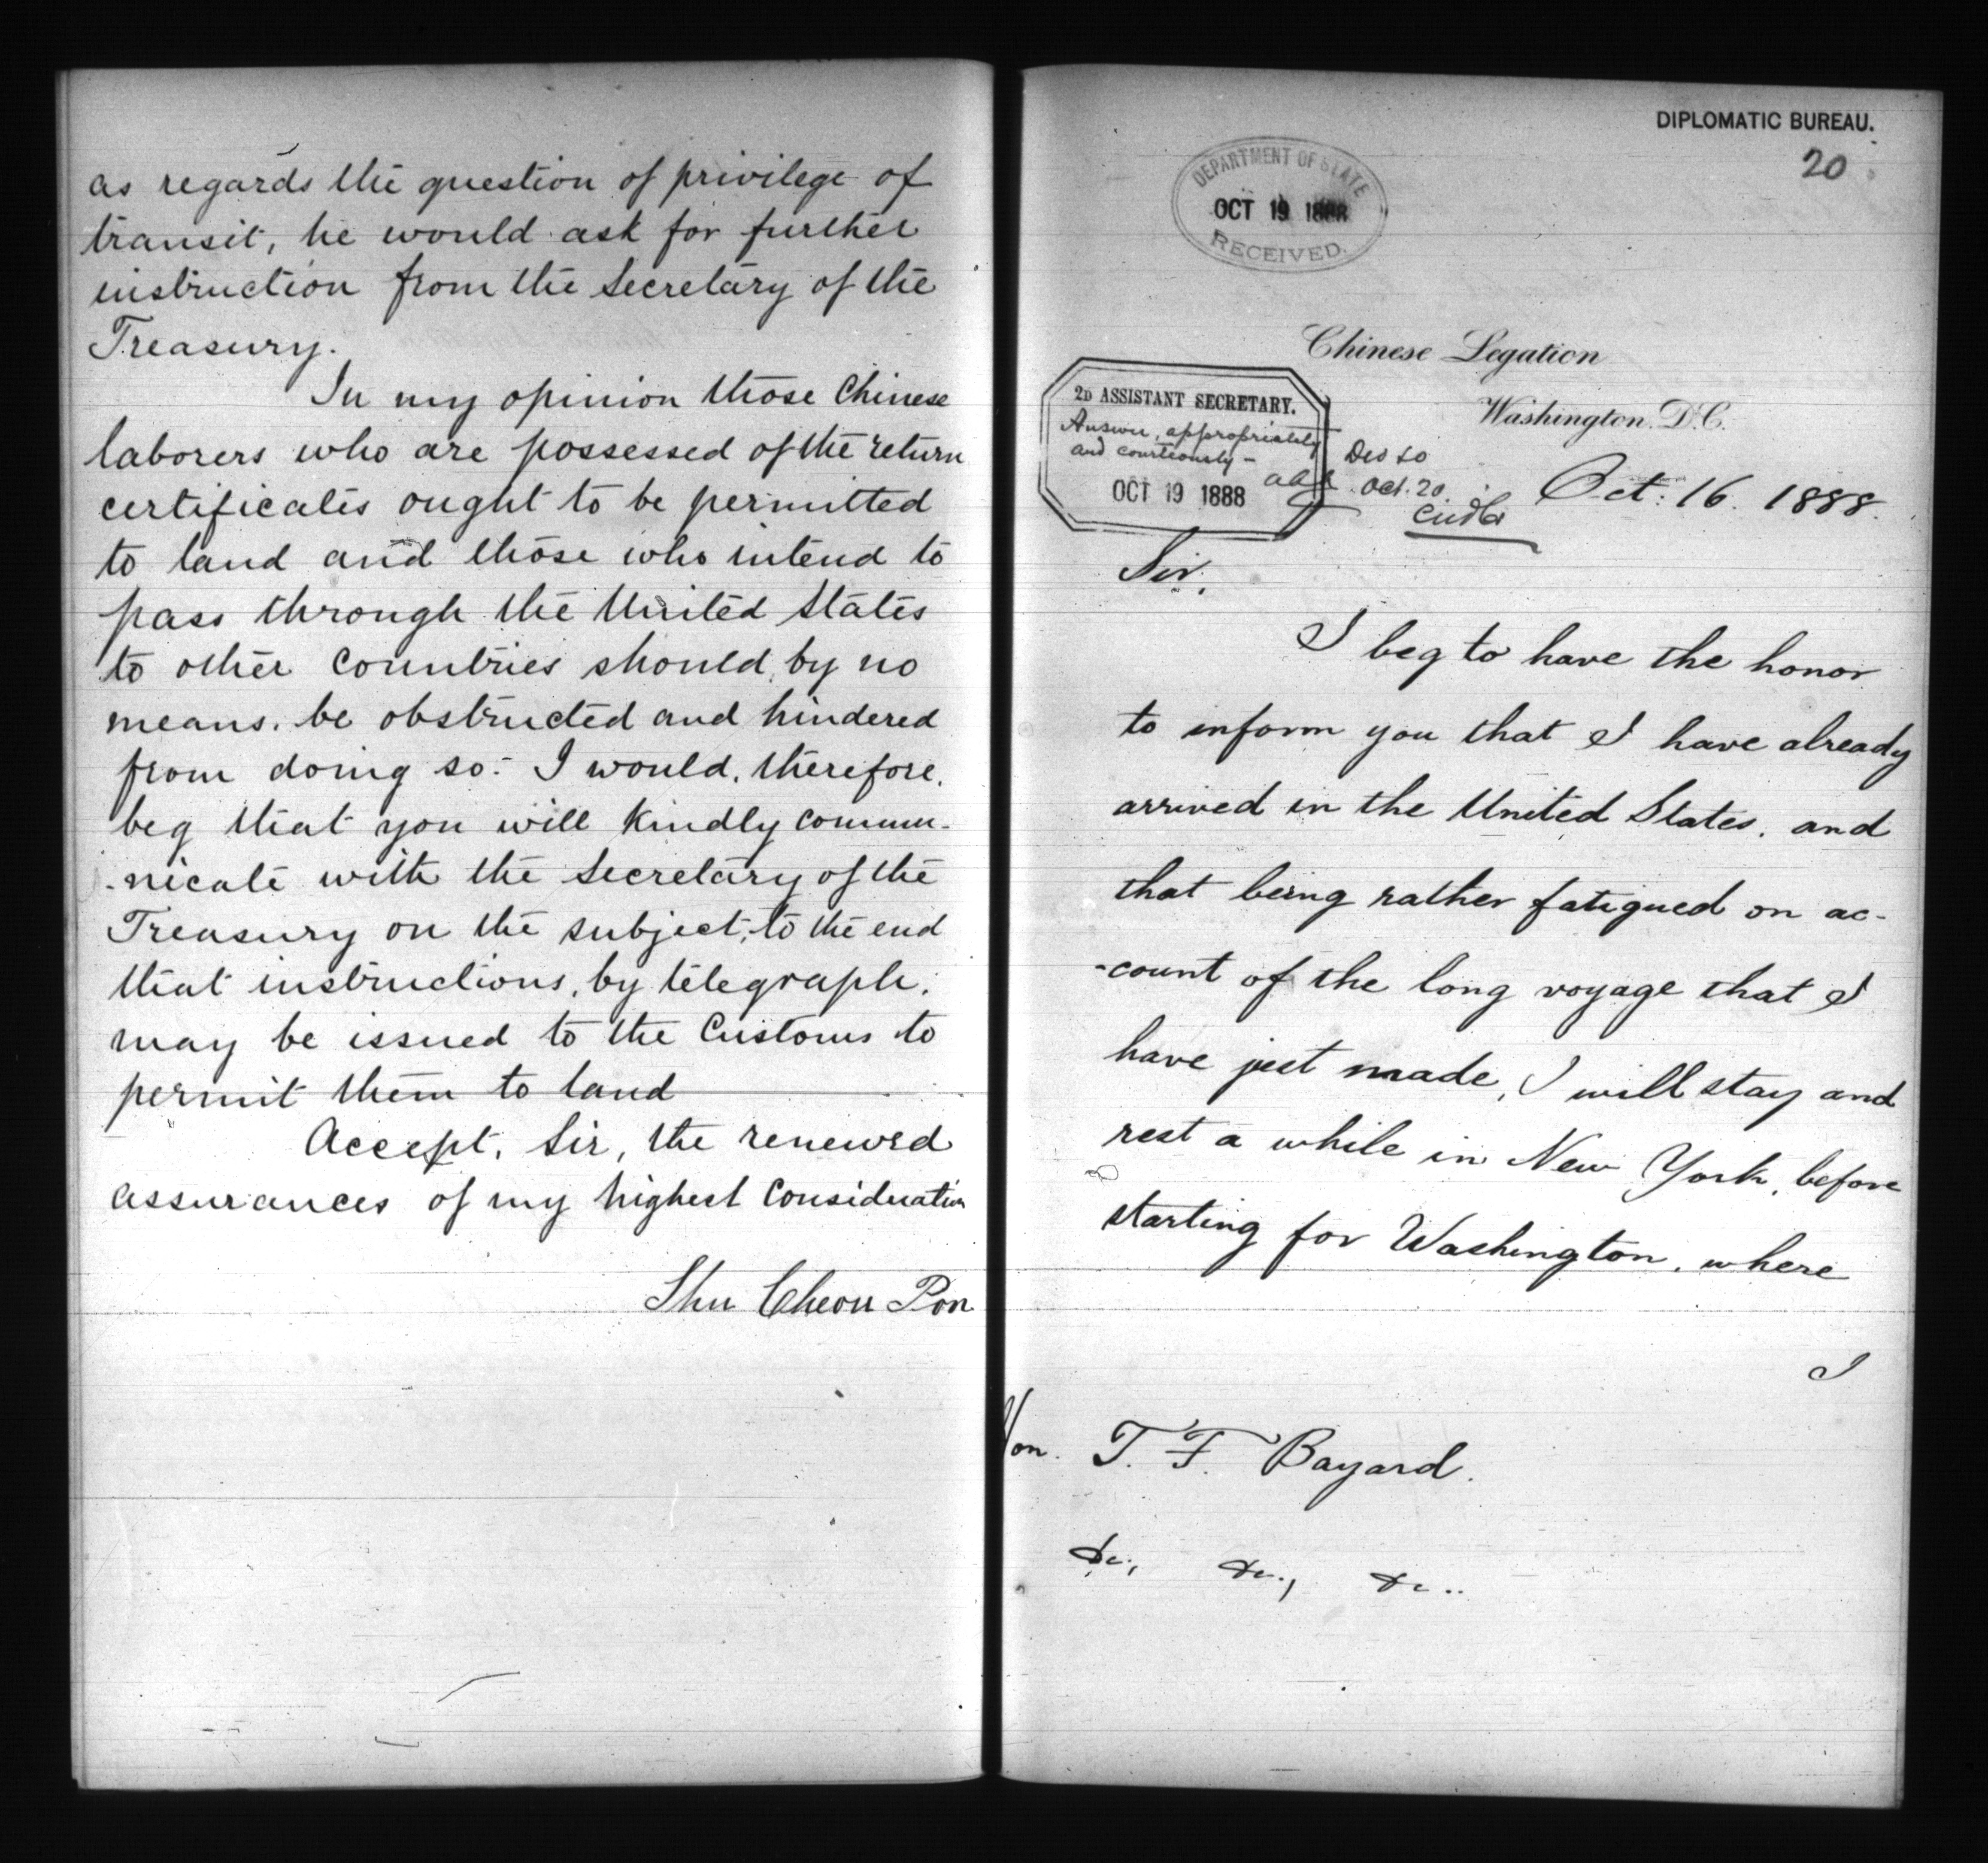 as regards the question of privilege of
transit, he would ask for further
instruction from the Secretary of the
Treasury.
In my opinion those Chinese
laborers who are possessed of the return
certificates ought to be permitted
to land and those who intend to
pass through the United States
to other countries should, by no
means. be obstructed and hindered
from doing so. I would, therefore,
beg that you will kindly commu-
-nicate with the Secretary of the
Treasury on the subject, to the end
that instructions, by telegraph,
may be issued to the Customs to
permit them to land
Accept, Sir, the renewed
assurances of my highest consideration
Shu Cheon Pon
DIPLOMATIC BUREAU.
20
DEPARTMENT OF STATE
OCT 19 1888
RECEIVED.
Chinese Legation
Washington. D.C.
2D ASSISTANT SECRETARY.
Answer, appropriately
and courteously —
OCT 19 1888
Oct. 20.
Oct: 16. 1888.
Sir,
I beg to have the honor
to inform you that I have already
arrived in the United States, and
that being rather fatigued on ac-
-count of the long voyage that I
have just made, I will stay and
rest a while in New York, before
starting for Washington, where
I
Hon. T. F. Bayard.
&c., &c., &c..